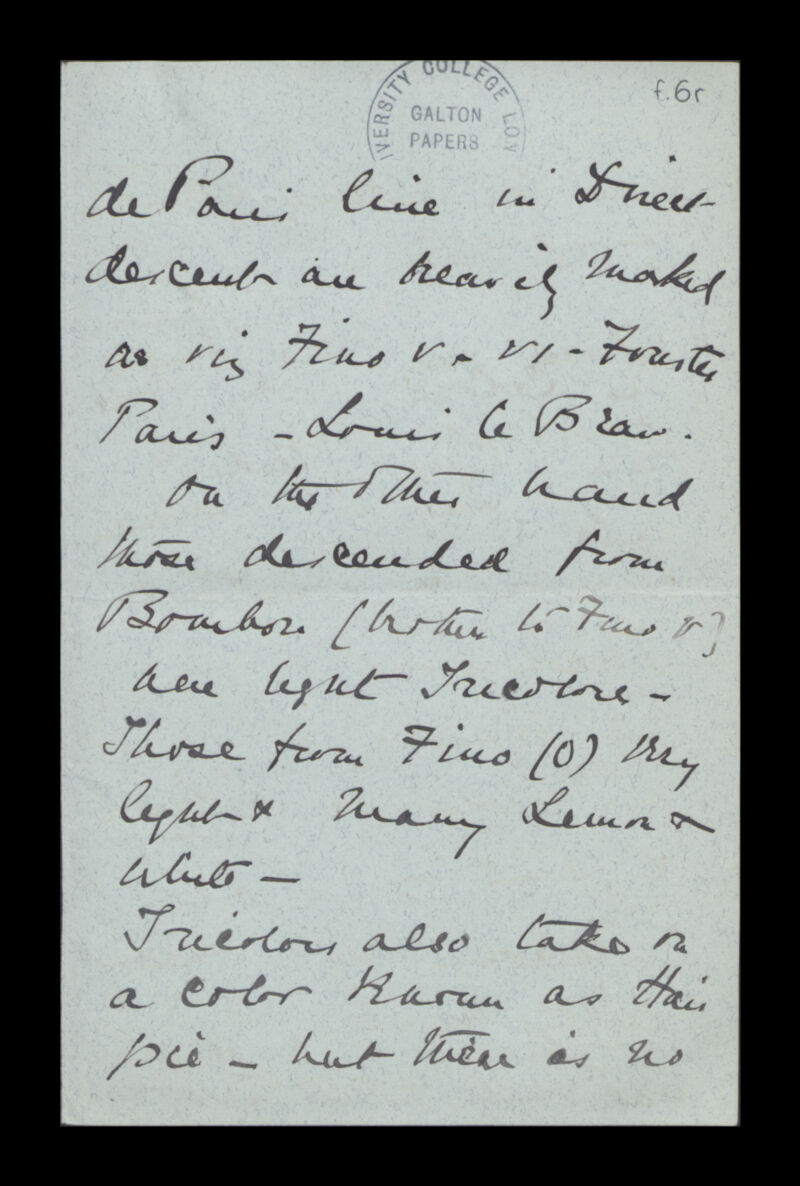 UNIVERSITY COLLEGE LON
GALTON
PAPERS
f.6r
de Paris line in Direct
descent are heavily marked
as viz Fino V. - VI -
Paris - Louis le Beau.
On the other hand
those descended from
Bourbon (brother to Fino V)
were light Tricolores -
Those from Fino (0) Very
light & Many Lemon &
White -
Tricolors also take on
a color Known as Hare
pie - but there is no